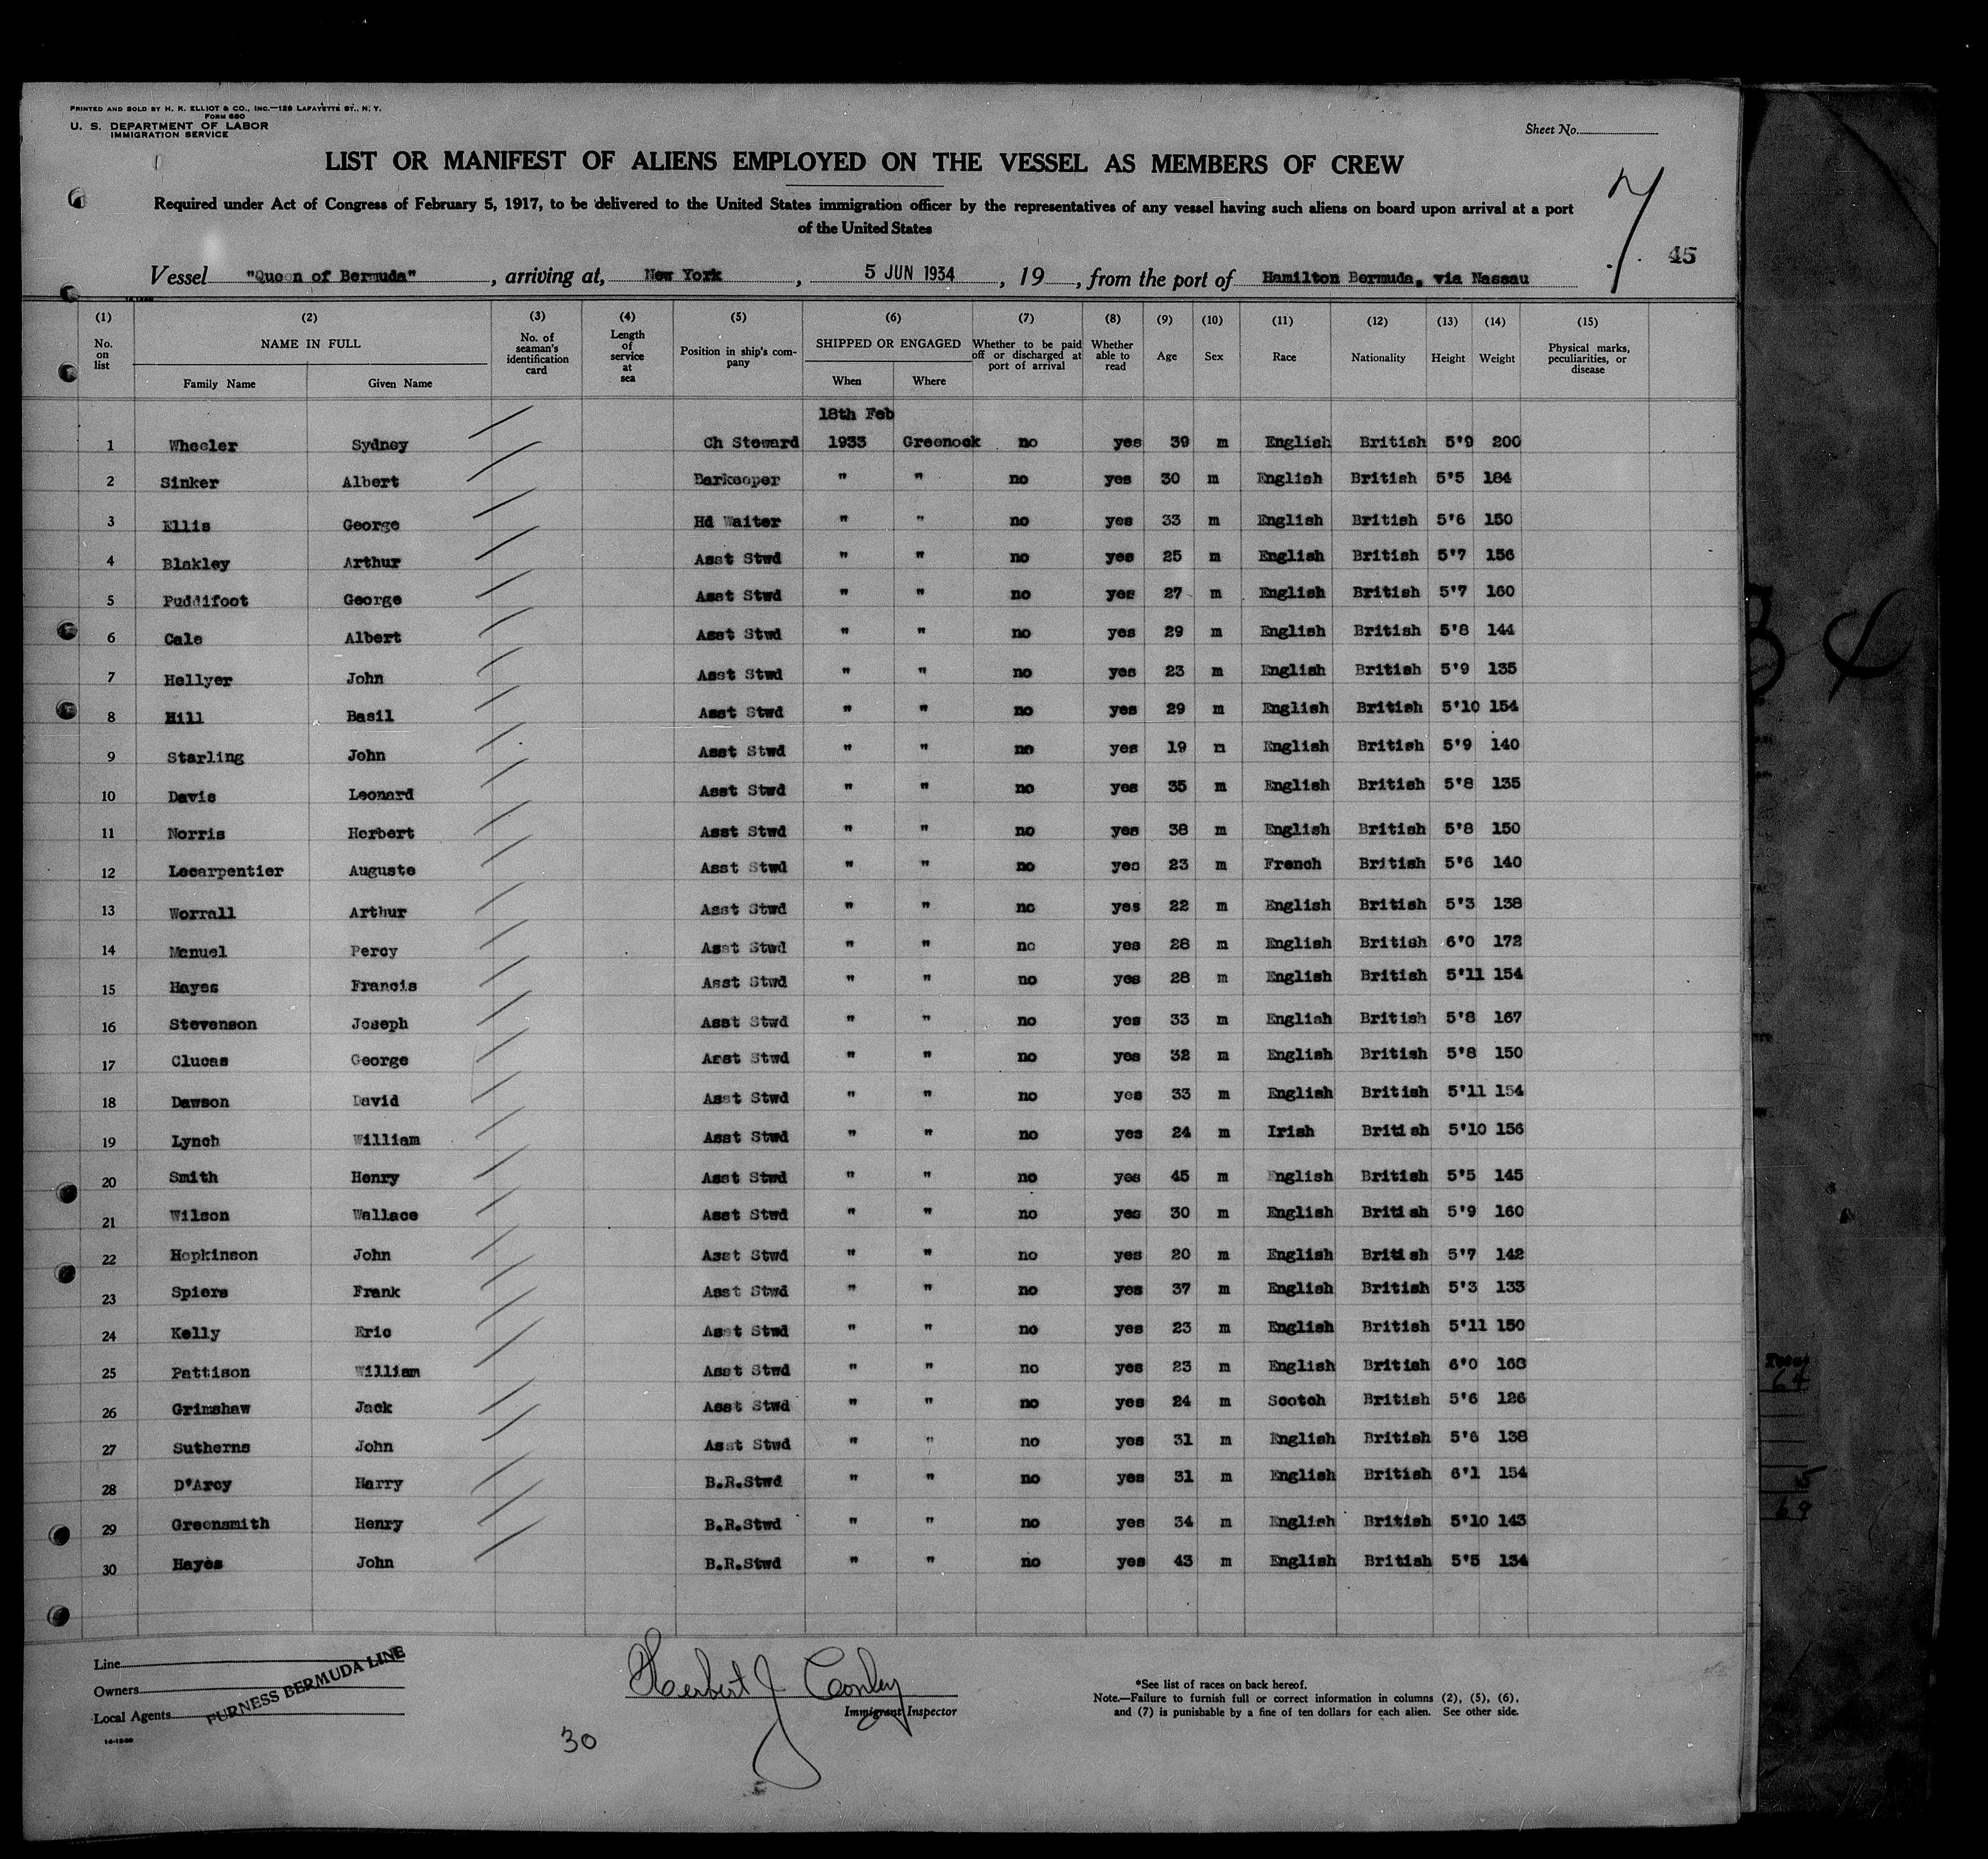 PRINTED AND SOLD BY H. K. ELLIOT & CO., INC.—129 LAFAYETTE ST., N. Y.
FORM 680
U. S. DEPARTMENT OF LABOR
IMMIGRATION SERVICE
Sheet No.
LIST OR MANIFEST OF ALIENS EMPLOYED ON THE VESSEL AS MEMBERS OF CREW
7
Required under Act of Congress of February 5, 1917, to be delivered to the United States immigration officer by the representatives of any vessel having such aliens on board upon arrival at a port
of the United States
45
Vessel "Queen of Bermuda", arriving at, New York, 5 JUN 1934, 19, from the port of Hamilton Bermuda, via Nassau
(1) (2) (3) (4) (5) (6) (7) (8) (9) (10) (11) (12) (13) (14) (15)
No. on list NAME IN FULL Family Name Given Name No. of seaman's identification card Length of service at sea Position in ship's company SHIPPED OR ENGAGED When Where Whether to be paid off or discharged at port of arrival Whether able to read Age Sex Race Nationality Height Weight Physical marks, peculiarities, or disease
18th Feb
1 Wheeler Sydney Ch Steward 1933 Greenock no yes 39 m English British 5'9 200
2 Sinker Albert Barkeeper " " no yes 30 m English British 5'5 184
3 Ellis George Hd Waiter " " no yes 33 m English British 5'6 150
4 Blakley Arthur Asst Stwd " " no yes 25 m English British 5'7 156
5 Puddifoot George Asst Stwd " " no yes 27 m English British 5'7 160
6 Cale Albert Asst Stwd " " no yes 29 m English British 5'8 144
7 Hellyer John Asst Stwd " " no yes 23 m English British 5'9 135
8 Hill Basil Asst Stwd " " no yes 29 m English British 5'10 154
9 Starling John Asst Stwd " " no yes 19 m English British 5'9 140
10 Davis Leonard Asst Stwd " " no yes 35 m English British 5'8 135
11 Norris Herbert Asst Stwd " " no yes 38 m English British 5'8 150
12 Lecarpentier Auguste Asst Stwd " " no yes 23 m French British 5'6 140
13 Worrall Arthur Asst Stwd " " no yes 22 m English British 5'3 138
14 Manuel Percy Asst Stwd " " no yes 28 m English British 6'0 172
15 Hayes Francis Asst Stwd " " no yes 28 m English British 5'11 154
16 Stevenson Joseph Asst Stwd " " no yes 33 m English British 5'8 167
17 Clucas George Asst Stwd " " no yes 32 m English British 5'8 150
18 Dawson David Asst Stwd " " no yes 33 m English British 5'11 154
19 Lynch William Asst Stwd " " no yes 24 m Irish British 5'10 156
20 Smith Henry Asst Stwd " " no yes 45 m English British 5'5 145
21 Wilson Wallace Asst Stwd " " no yes 30 m English British 5'9 160
22 Hopkinson John Asst Stwd " " no yes 20 m English British 5'7 142
23 Spiers Frank Asst Stwd " " no yes 37 m English British 5'3 133
24 Kelly Eric Asst Stwd " " no yes 23 m English British 5'11 150
25 Pattison William Asst Stwd " " no yes 23 m English British 6'0 168
26 Grimshaw Jack Asst Stwd " " no yes 24 m Scotch British 5'6 126
27 Sutherns John Asst Stwd " " no yes 31 m English British 5'6 138
28 D'Arcy Harry B.R.Stwd " " no yes 31 m English British 6'1 154
29 Greensmith Henry B.R.Stwd " " no yes 34 m English British 5'10 143
30 Hayes John B.R.Stwd " " no yes 43 m English British 5'5 134
Line
Owners
Local Agents
FURNESS BERMUDA LINE
Herbert J Conley
Immigrant Inspector
*See list of races on back hereof.
Note.—Failure to furnish full or correct information in columns (2), (5), (6),
and (7) is punishable by a fine of ten dollars for each alien. See other side.
30